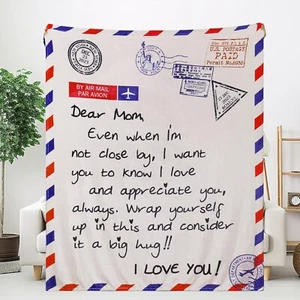 U.S. POSTAGE
PAID
BY AIR MAIL
PAR AVION
Dear Mom,
Even when i'm
not close by, I want
you to know I love
and appreciate you,
always. Wrap yourself
up in this and consider
it a big hug!!
I LOVE YOU!